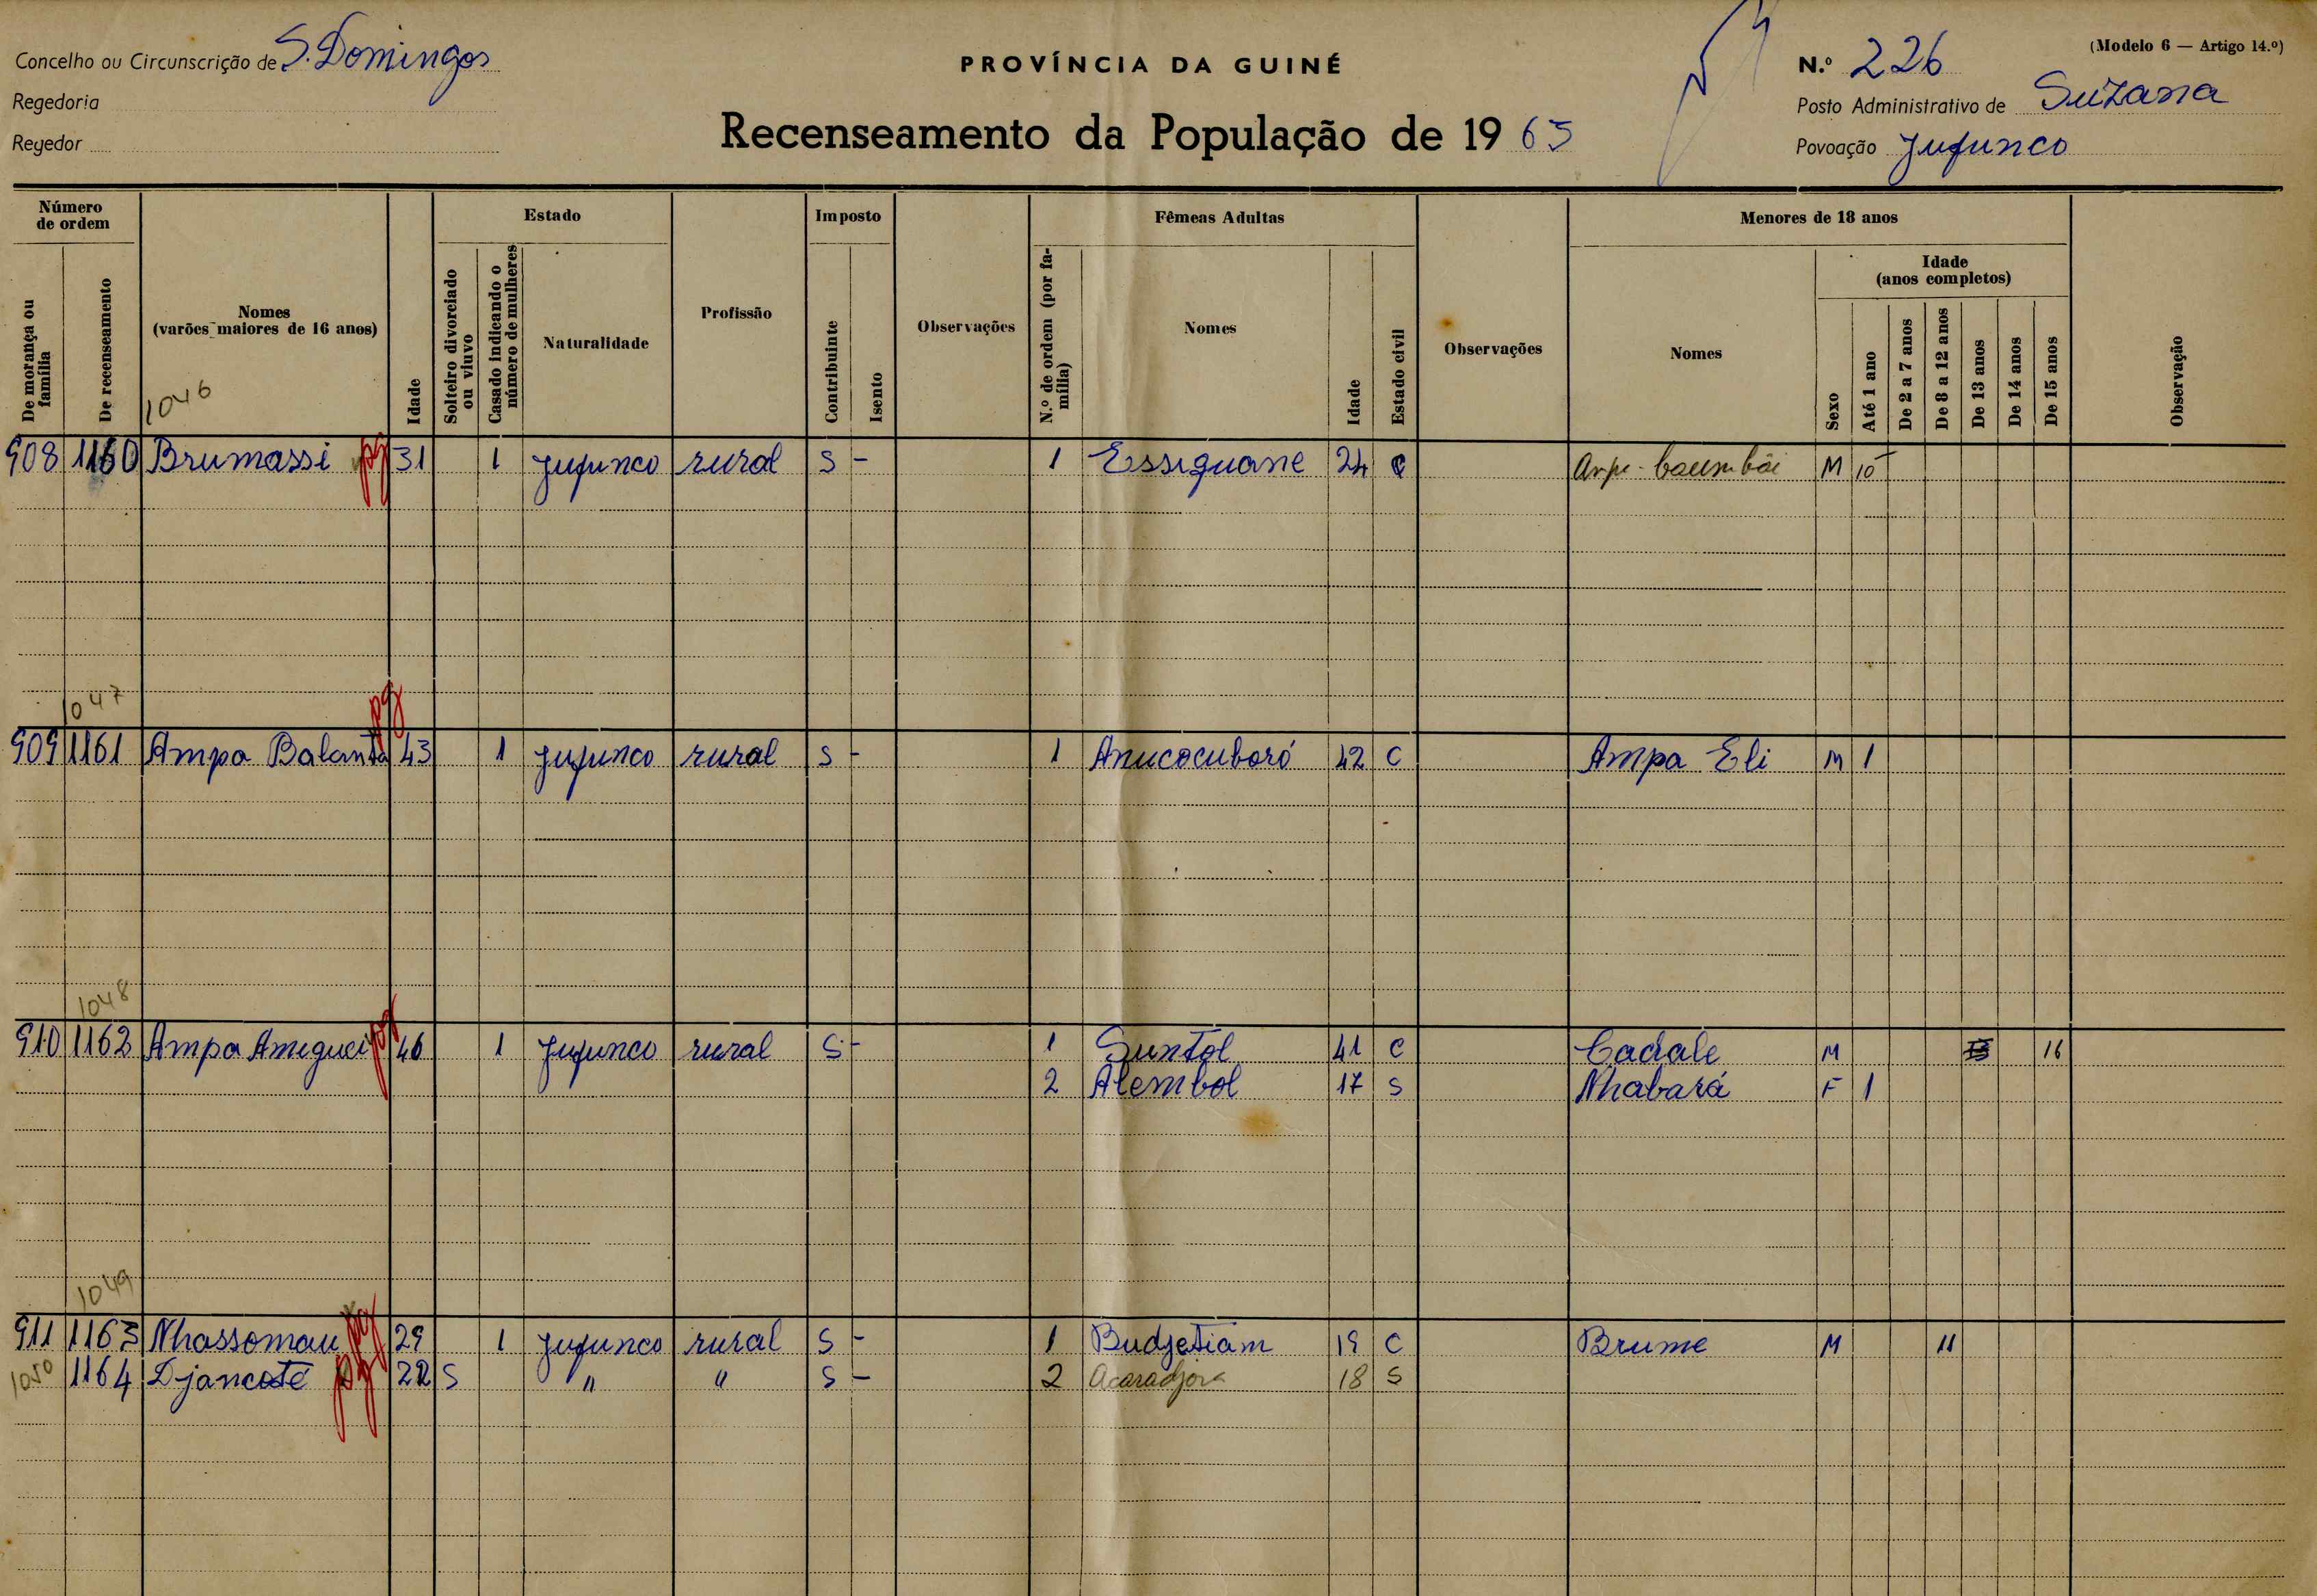 Concelho ou Circunscrição de S. Domingos
Regedoria
Regedor
PROVÍNCIA DA GUINÉ
Recenseamento da População de 1963
(Modelo 6 — Artigo 14.º)
N.º 226
Posto Administrativo de Suzana
Povoação Jufunco
Número de ordem
De morança ou família
De recenseamento
Nomes
(varões maiores de 16 anos)
Idade
Estado
Solteiro divorciado ou viuvo
Casado indicando o número de mulheres
Naturalidade
Profissão
Imposto
Contribuinte
Isento
Observações
Fêmeas Adultas
N.º de ordem (por família)
Nomes
Idade
Estado civil
Observações
Menores de 18 anos
Nomes
Sexo
Idade
(anos completos)
Até 1 ano
De 2 a 7 anos
De 8 a 12 anos
De 13 anos
De 14 anos
De 15 anos
Observação
1046
908 1160 Brumassi pg 31 1 Jufunco rural S - 1 Essiguane 24 C M
1047
909 1161 Ampa Balanta pg 43 1 Jufunco rural S - 1 Anucocuboró 42 C Ampa Eli M 1
1048
910 1162 Ampa Ameguei pg 46 1 Jufunco rural S - 1 Suntol 41 C Cadale M 16
2 Alembol 17 S Nhabará F 1
1049
911 1163 Nhassomau pg 29 1 Jufunco rural S - 1 Budjetiam 19 C Brume M 11
1050 1164 Djancoté pg 22 S " " S - 2 Acaradjora 18 S